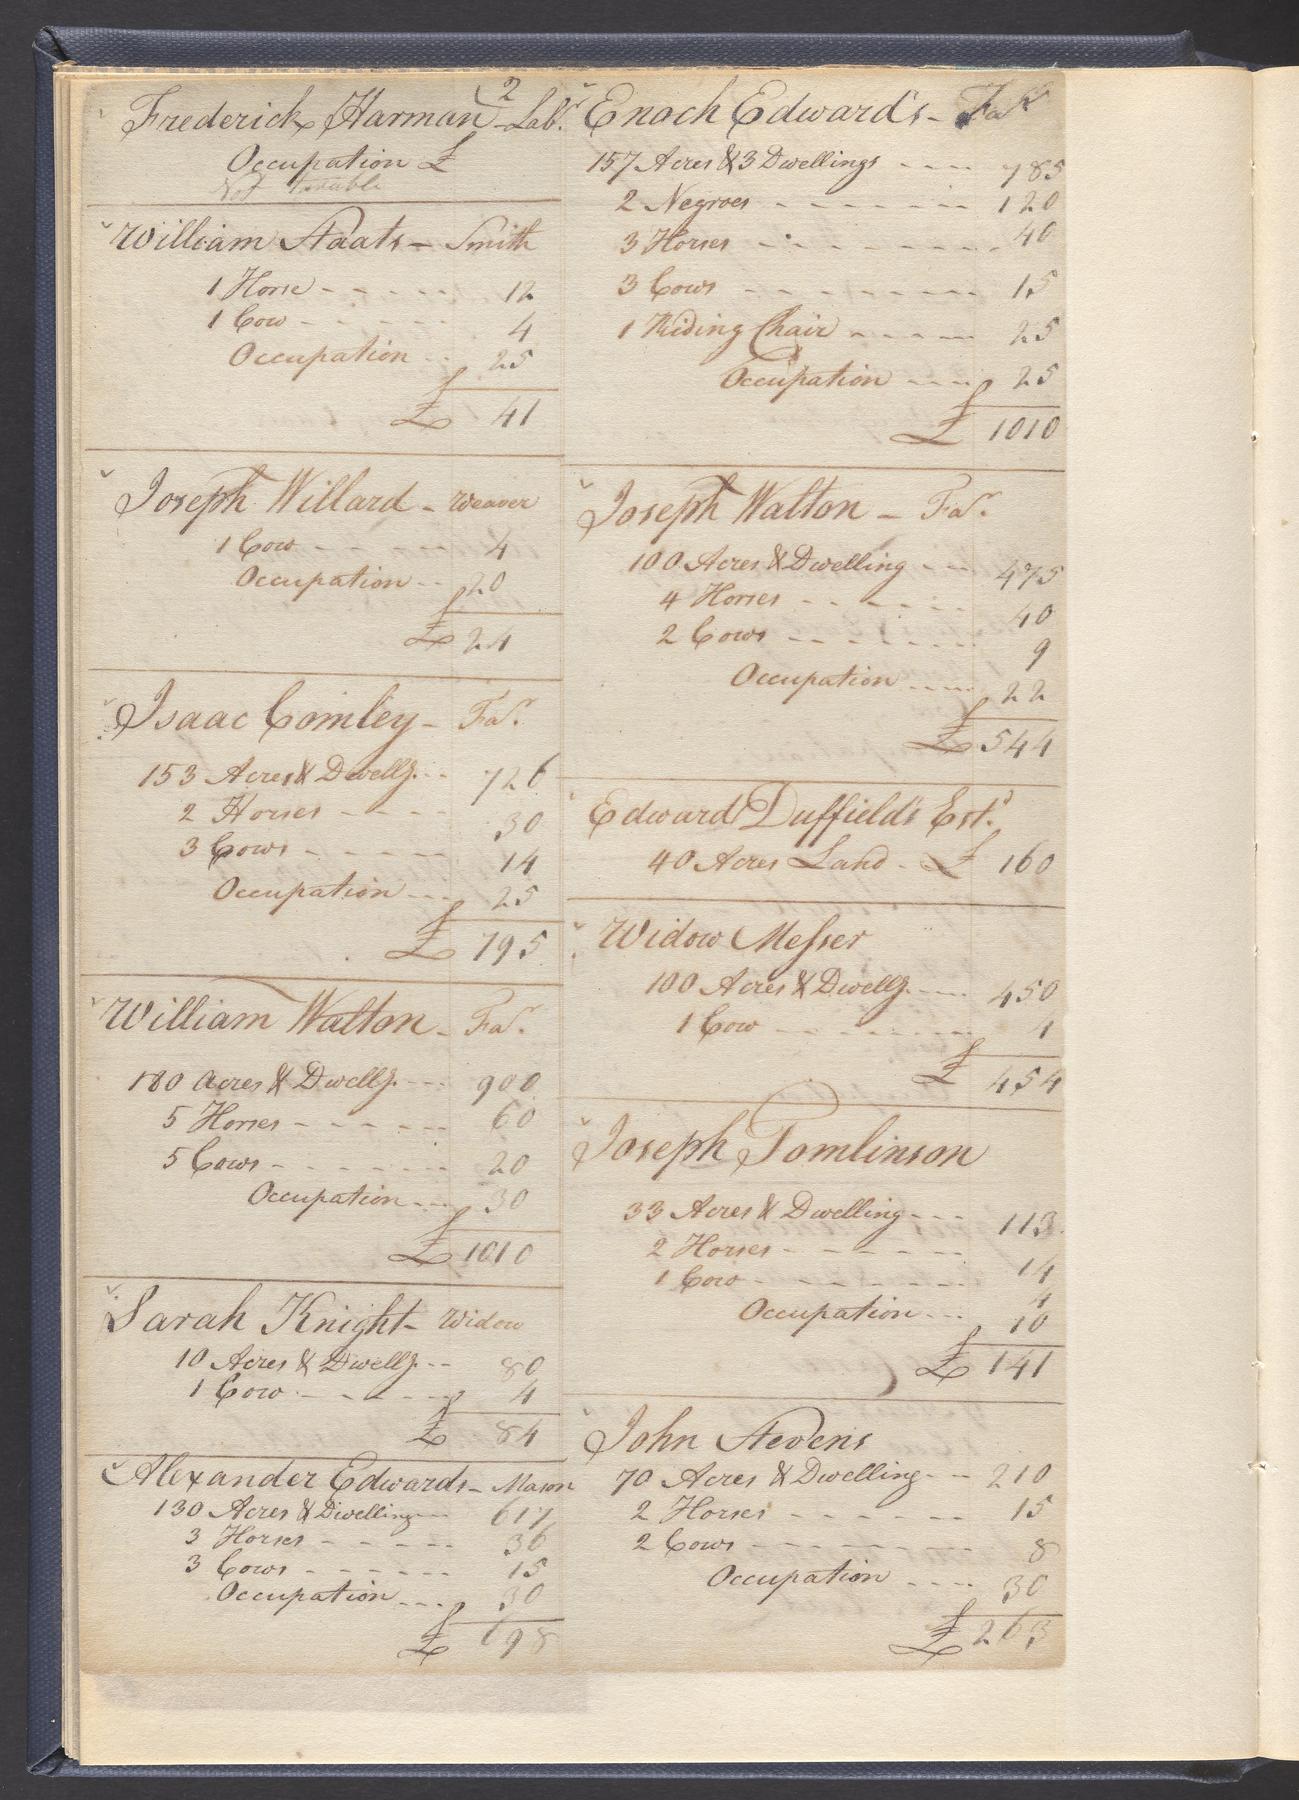 2
Frederick Harman - Labr.
Occupation £
Not Taxable
William Staats - Smith
1 Horse - - - - - 12
1 Cow - - - - - 4
Occupation - - 25
£ 41
Joseph Willard - Weaver
1 Cow - - - - - 4
Occupation - - 20
£ 24
Isaac Comley - Far.
153 Acres & Dwellg. - - 726
2 Horses - - - - 30
3 Cows - - - - - 14
Occupation - - - 25
£ 795
William Walton - Far.
180 Acres & Dwellg. - - - 900
5 Horses - - - - - - 60
5 Cows - - - - - - 20
Occupation - - - 30
£ 1010
Sarah Knight - Widow
10 Acres & Dwellg. - - 80
1 Cow - - - - - 4
£ 84
Alexander Edwards - Mason
130 Acres & Dwelling - - - 617
3 Horses - - - - - 36
3 Cows - - - - - - 15
Occupation - - - 30
£ 698
Enoch Edward's - Far
157 Acres & 3 Dwellings - - - - 785
2 Negroes - - - - - - - 120
3 Horses - - - - - - - - 40
3 Cows - - - - - - - - - 15
1 Riding Chair - - - - - 25
Occupation - - - - 25
£ 1010
Joseph Walton - Far.
100 Acres & Dwelling - - - 475
4 Horses - - - - - - 40
2 Cows - - - - - - - 9
Occupation - - - - 22
£ 544
Edward Duffield's Estd.
40 Acres Land - £ 160
Widow Messer
100 Acres & Dwellg. - - - 450
1 Cow - - - - - - - - 4
£ 454
Joseph Tomlinson
33 Acres & Dwelling - - - 113
2 Horses - - - - - - 14
1 Cow - - - - - - - - 4
Occupation - - - 10
£ 141
John Stevens
70 Acres & Dwelling - - - 210
2 Horses - - - - - - 15
2 Cows - - - - - - - - 8
Occupation - - - - 30
£ 263